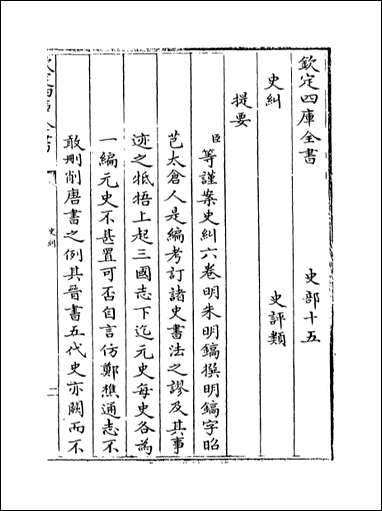 欽定四庫全書　史部十五
史糾　史評類
提要
臣等謹案史糾六卷明朱明鎬撰明鎬字昭
芑太倉人是編考訂諸史書法之謬及其事
迹之牴牾上起三國志下迄元史每史各為
一編元史不甚置可否自言仿鄭樵通志不
敢刪削唐書之例其晉書五代史亦闕而不
史糾
一